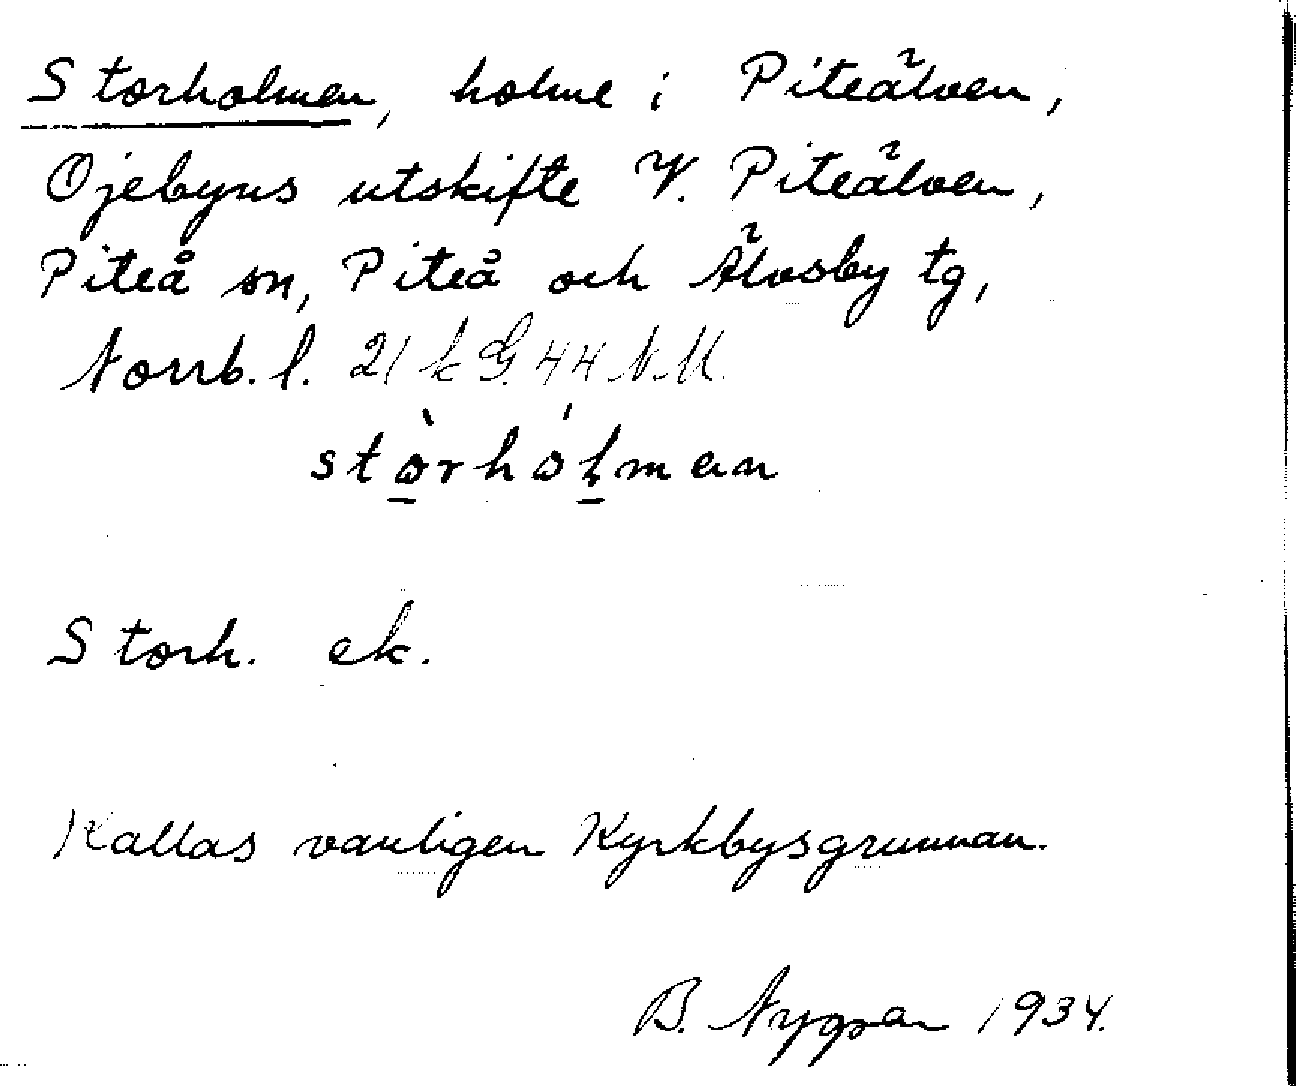 Storholmen, holme i Piteälven,
Öjebyns utskifte V. Piteälven,
Piteå sn, Piteå och Älvsby tg,
Norrb. l. 21 k G. 44 N.M.
stòrhólman
Storh. ek.
Kallas vanligen Kyrkbysgrunnan.
B. Nygren 1934.